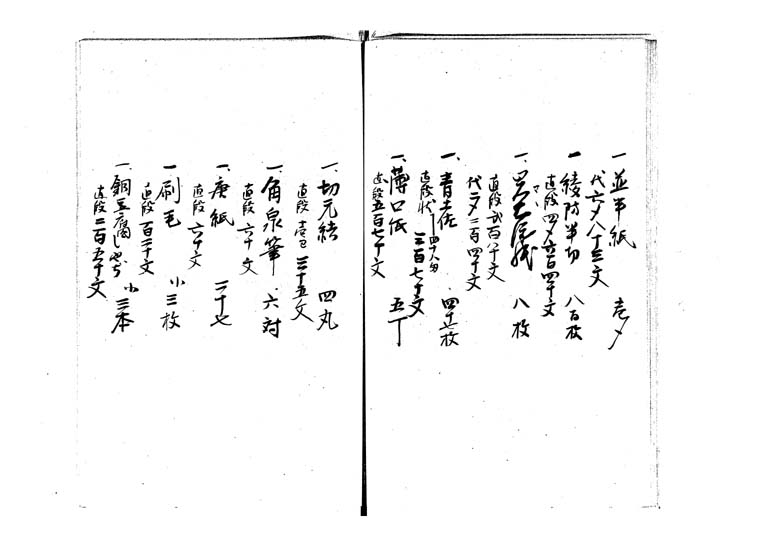 一 並半紙 壱〆
代六〆八十三文
一 綾防半切 八百枚
直段四〆六百四十文
一 八枚
直段弐百八十文
代二〆二百四十文
一、青土佐 四十七枚
直段 三百七十文
一、薄口紙 五丁
直段五百七十文
一、切元結 四丸
直段 三十五文
一、角泉筆 六対
直段 六十文
一、唐紙 二十七
直段 六十文
一 刷毛 小三枚
直段 百二十文
一、銅豆腐しやくし 小三本
直段二百五十文